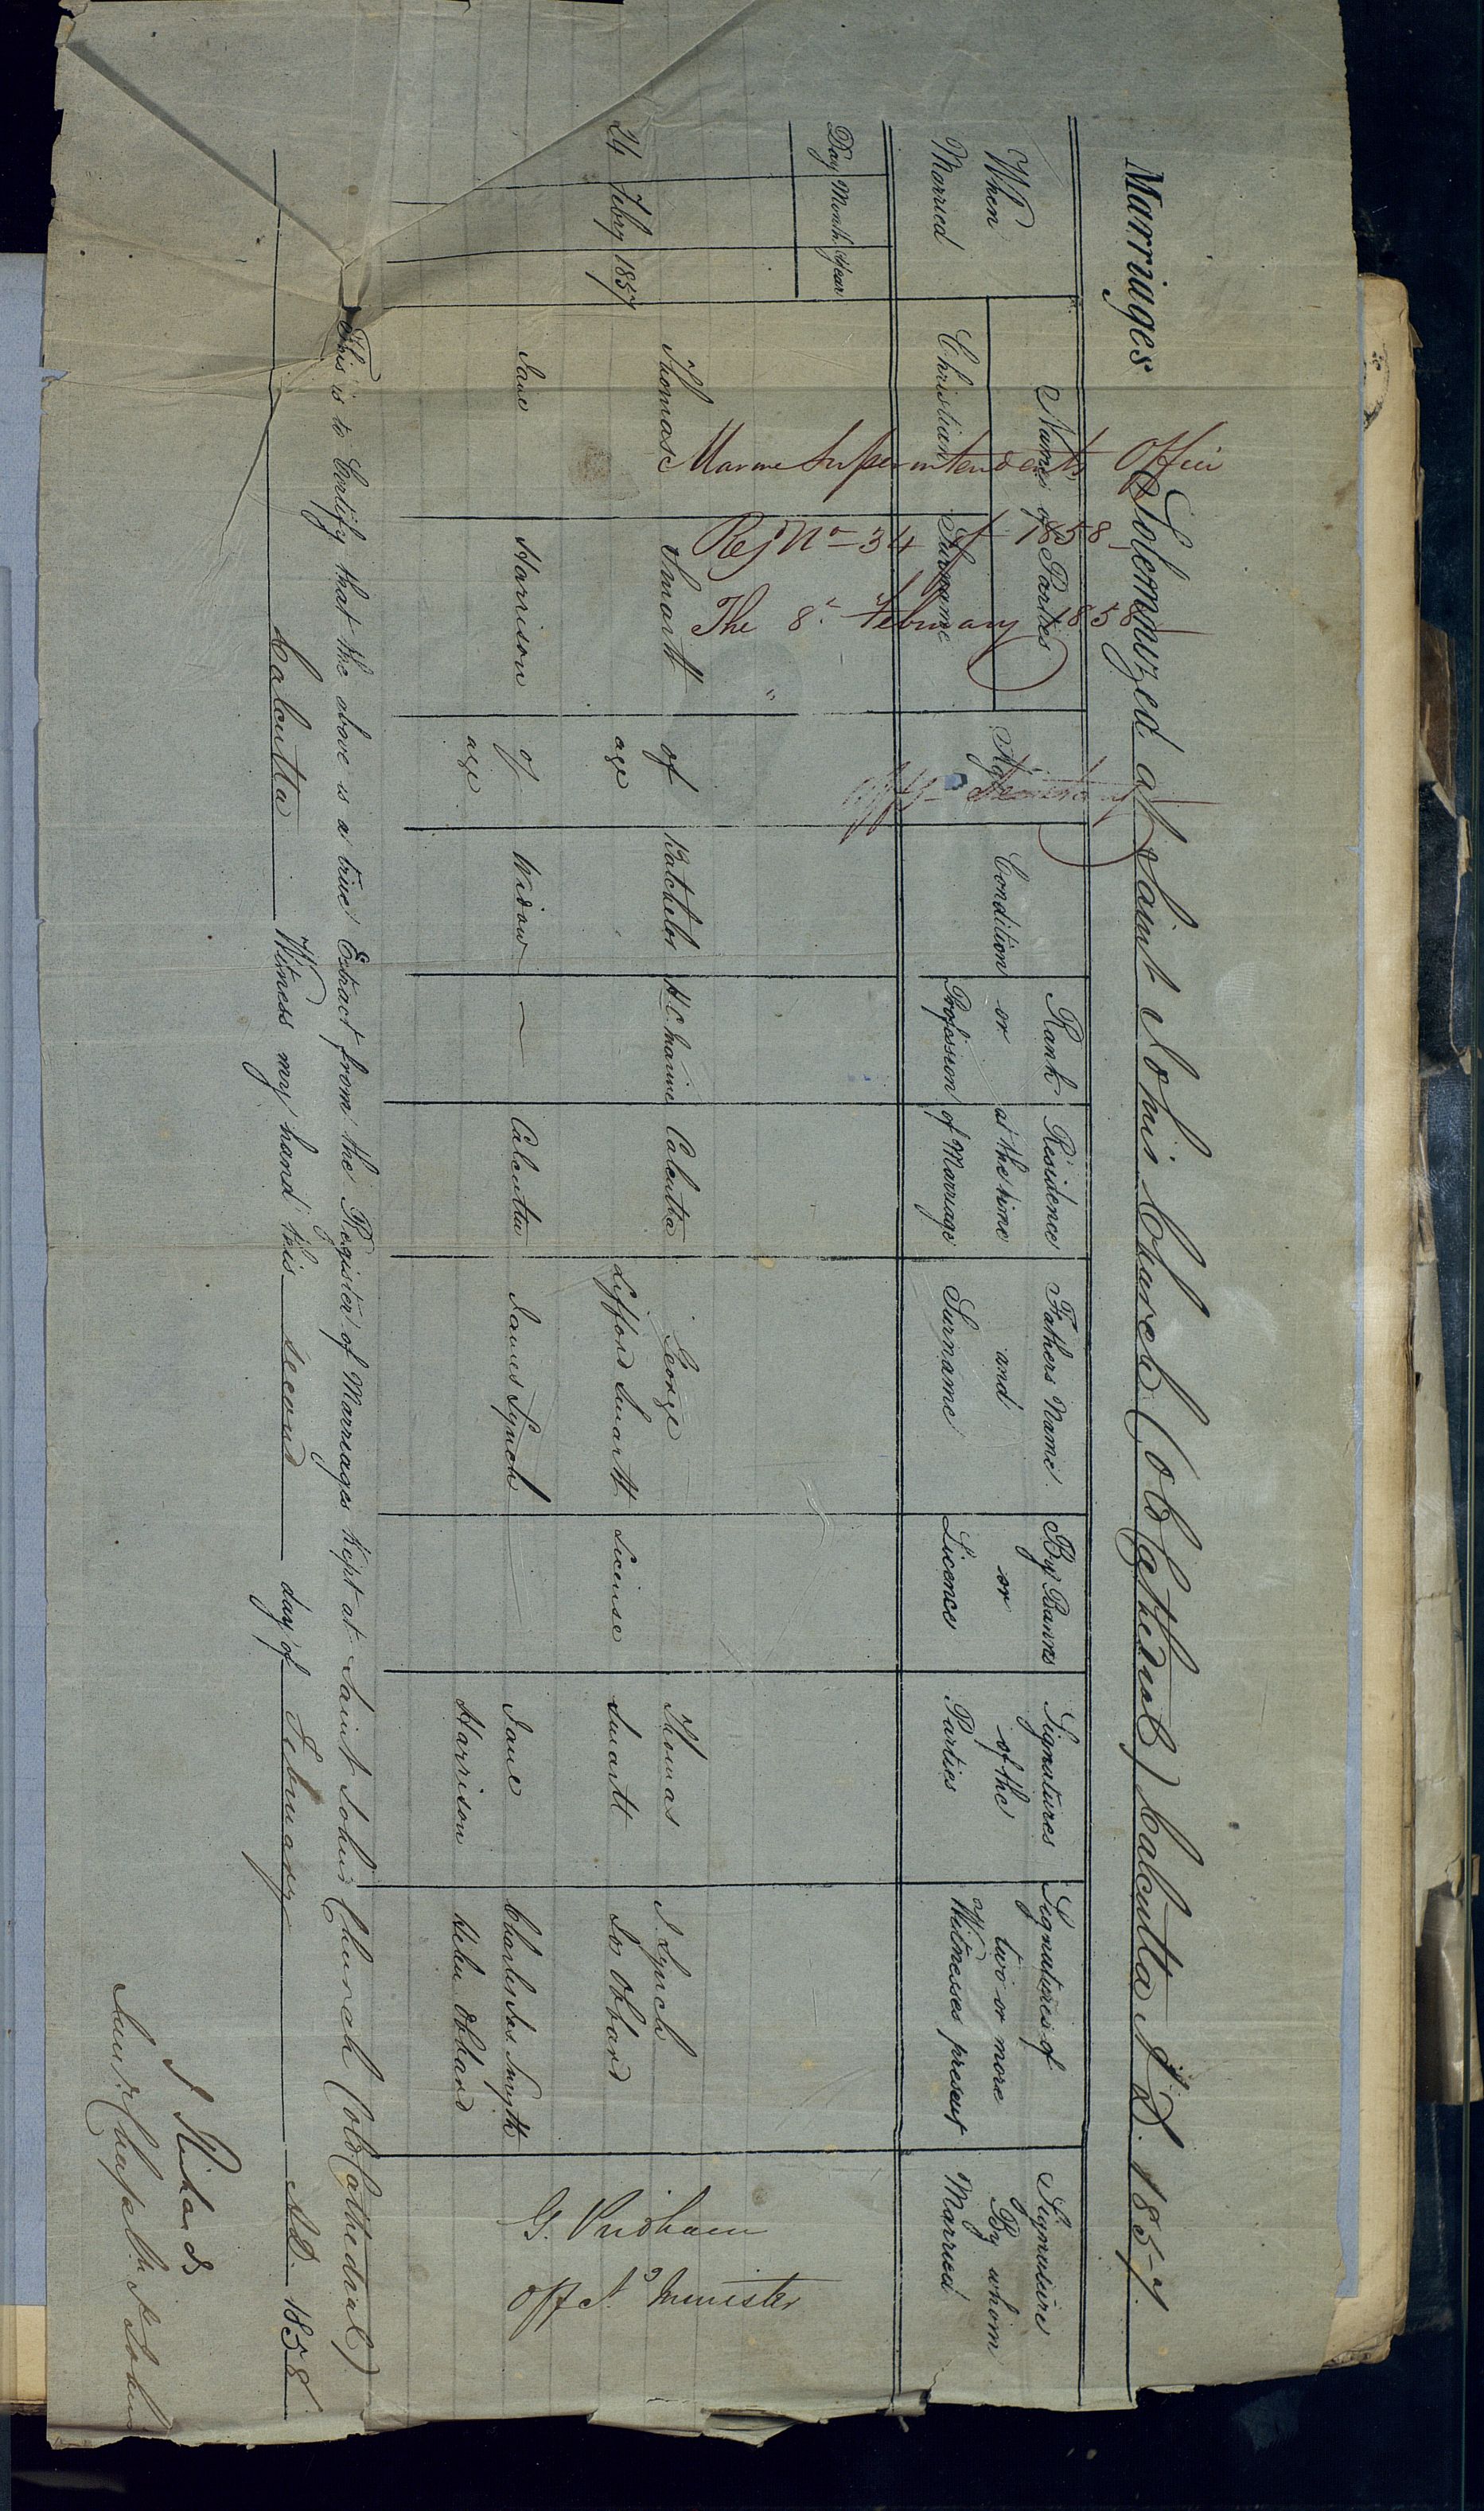 Marriages Solemnyzed at Saint Johns Church (old Cathedral) Calcutta A.D. 1857.
When Married
Day Month Year
Names of Parties
Christian
Surname
Age
Condition
Rank or Profession
Residence at the time of Marriage
Fathers Name and Surname
By Banns or Licence
Signatures of the Parties
Signatures of two or more Witnesses present
Signature By whom Married
Marine Superintendents Office
Reg No 34 of 1858
The 8th February 1858
Offg Secretary
24 Febry 1857
Thomas
Smartt
of age
Batchelor
H.C. Marine
Calcutta
George Lifford Smartt
License
Thomas Smartt
J. Lynch
Jos Obbard
Jane
Harrison
of age
Widow
—
Calcutta
James Lynch
Jane Harrison
Charles Jas. Smyth
Helen Obbard
G. Pridham
Offg. Jr. Minister
This is to Certify that the above is a true Extract from the Register of Marriages kept at Saint Johns Church (old Cathedral)
Calcutta Witness my hand this second day of February A.D. 1858
J Richards
Junr. Chapl. St. Johns